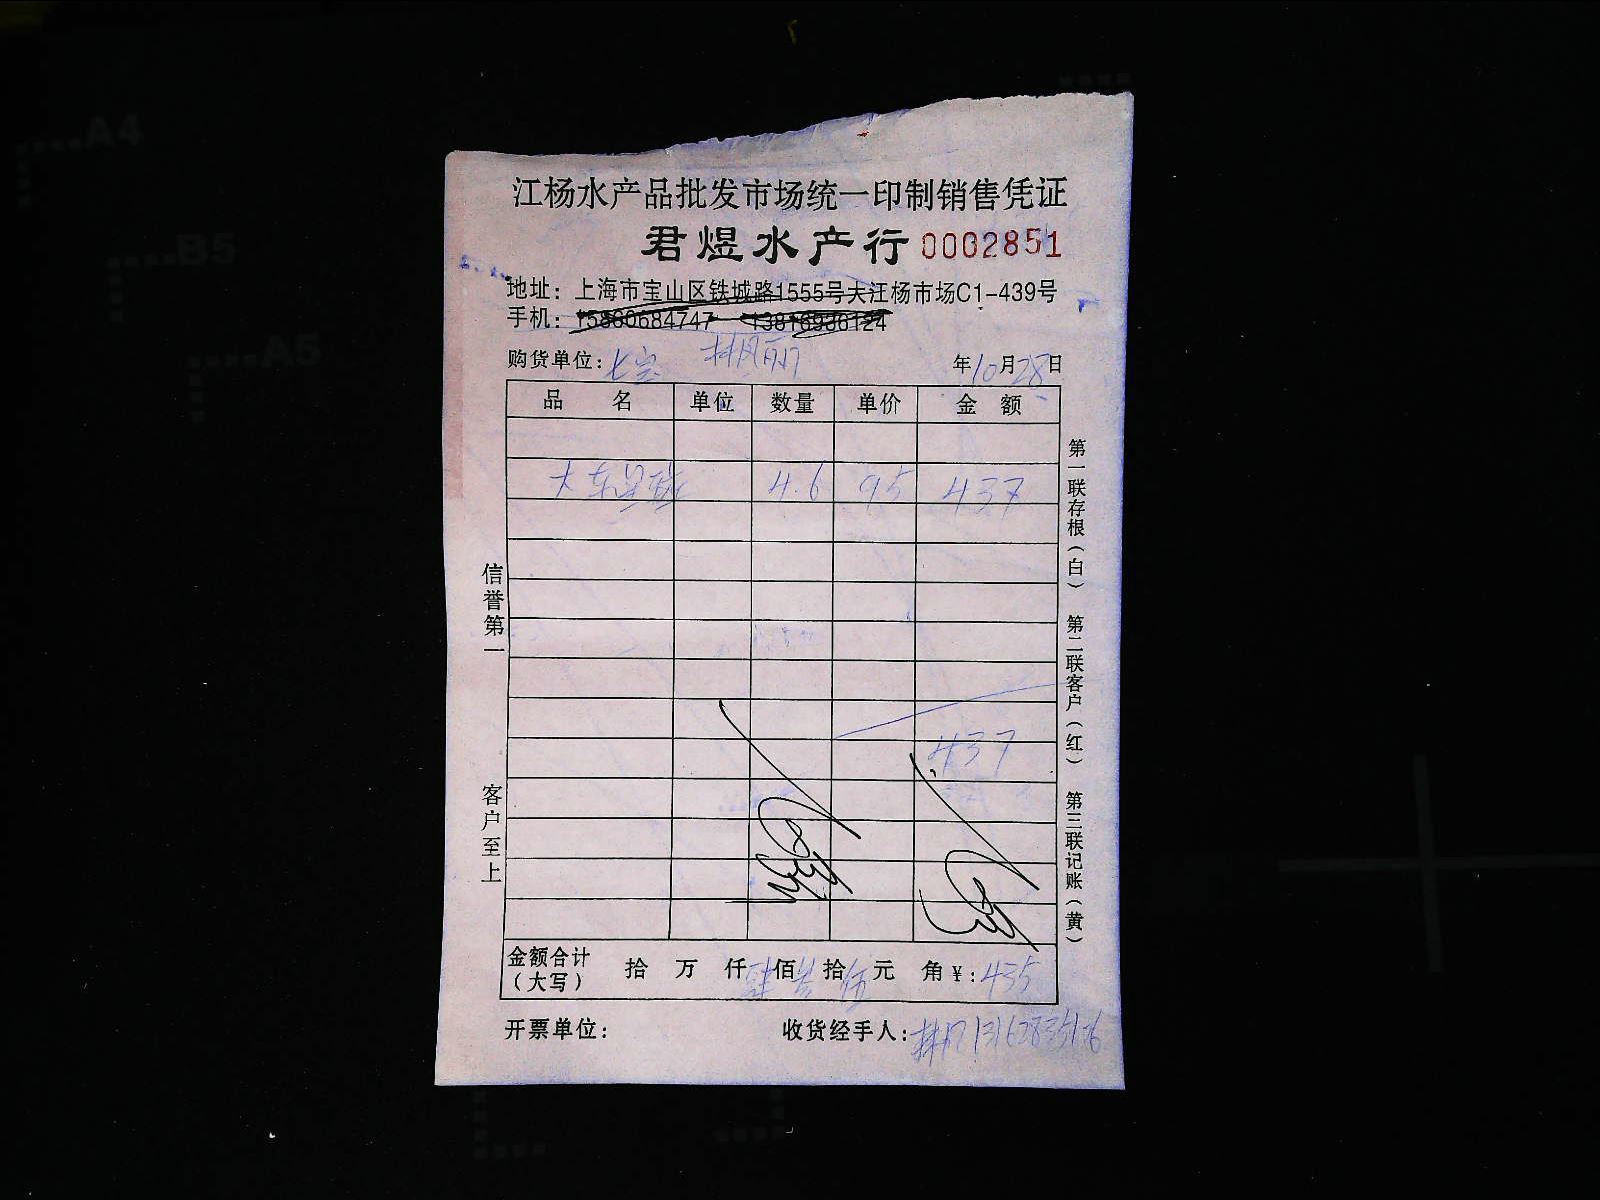 江杨水产品批发市场统一印制销售凭证
君煜水产行 0002851
地址：上海市宝山区铁城路1555号大江杨市场C1-439号
手机：15800684747
购货单位：七宝 年10月28日
品 名 单位 数量 单价 金 额
大 4.6 95 437
437
金额合计（大写） 拾 万 仟肆佰叁拾伍元 角￥：435
开票单位： 收货经手人：
信誉第一
客户至上
第一联存根（白） 第二联客户（红） 第三联记账（黄）
A4
B5
A5